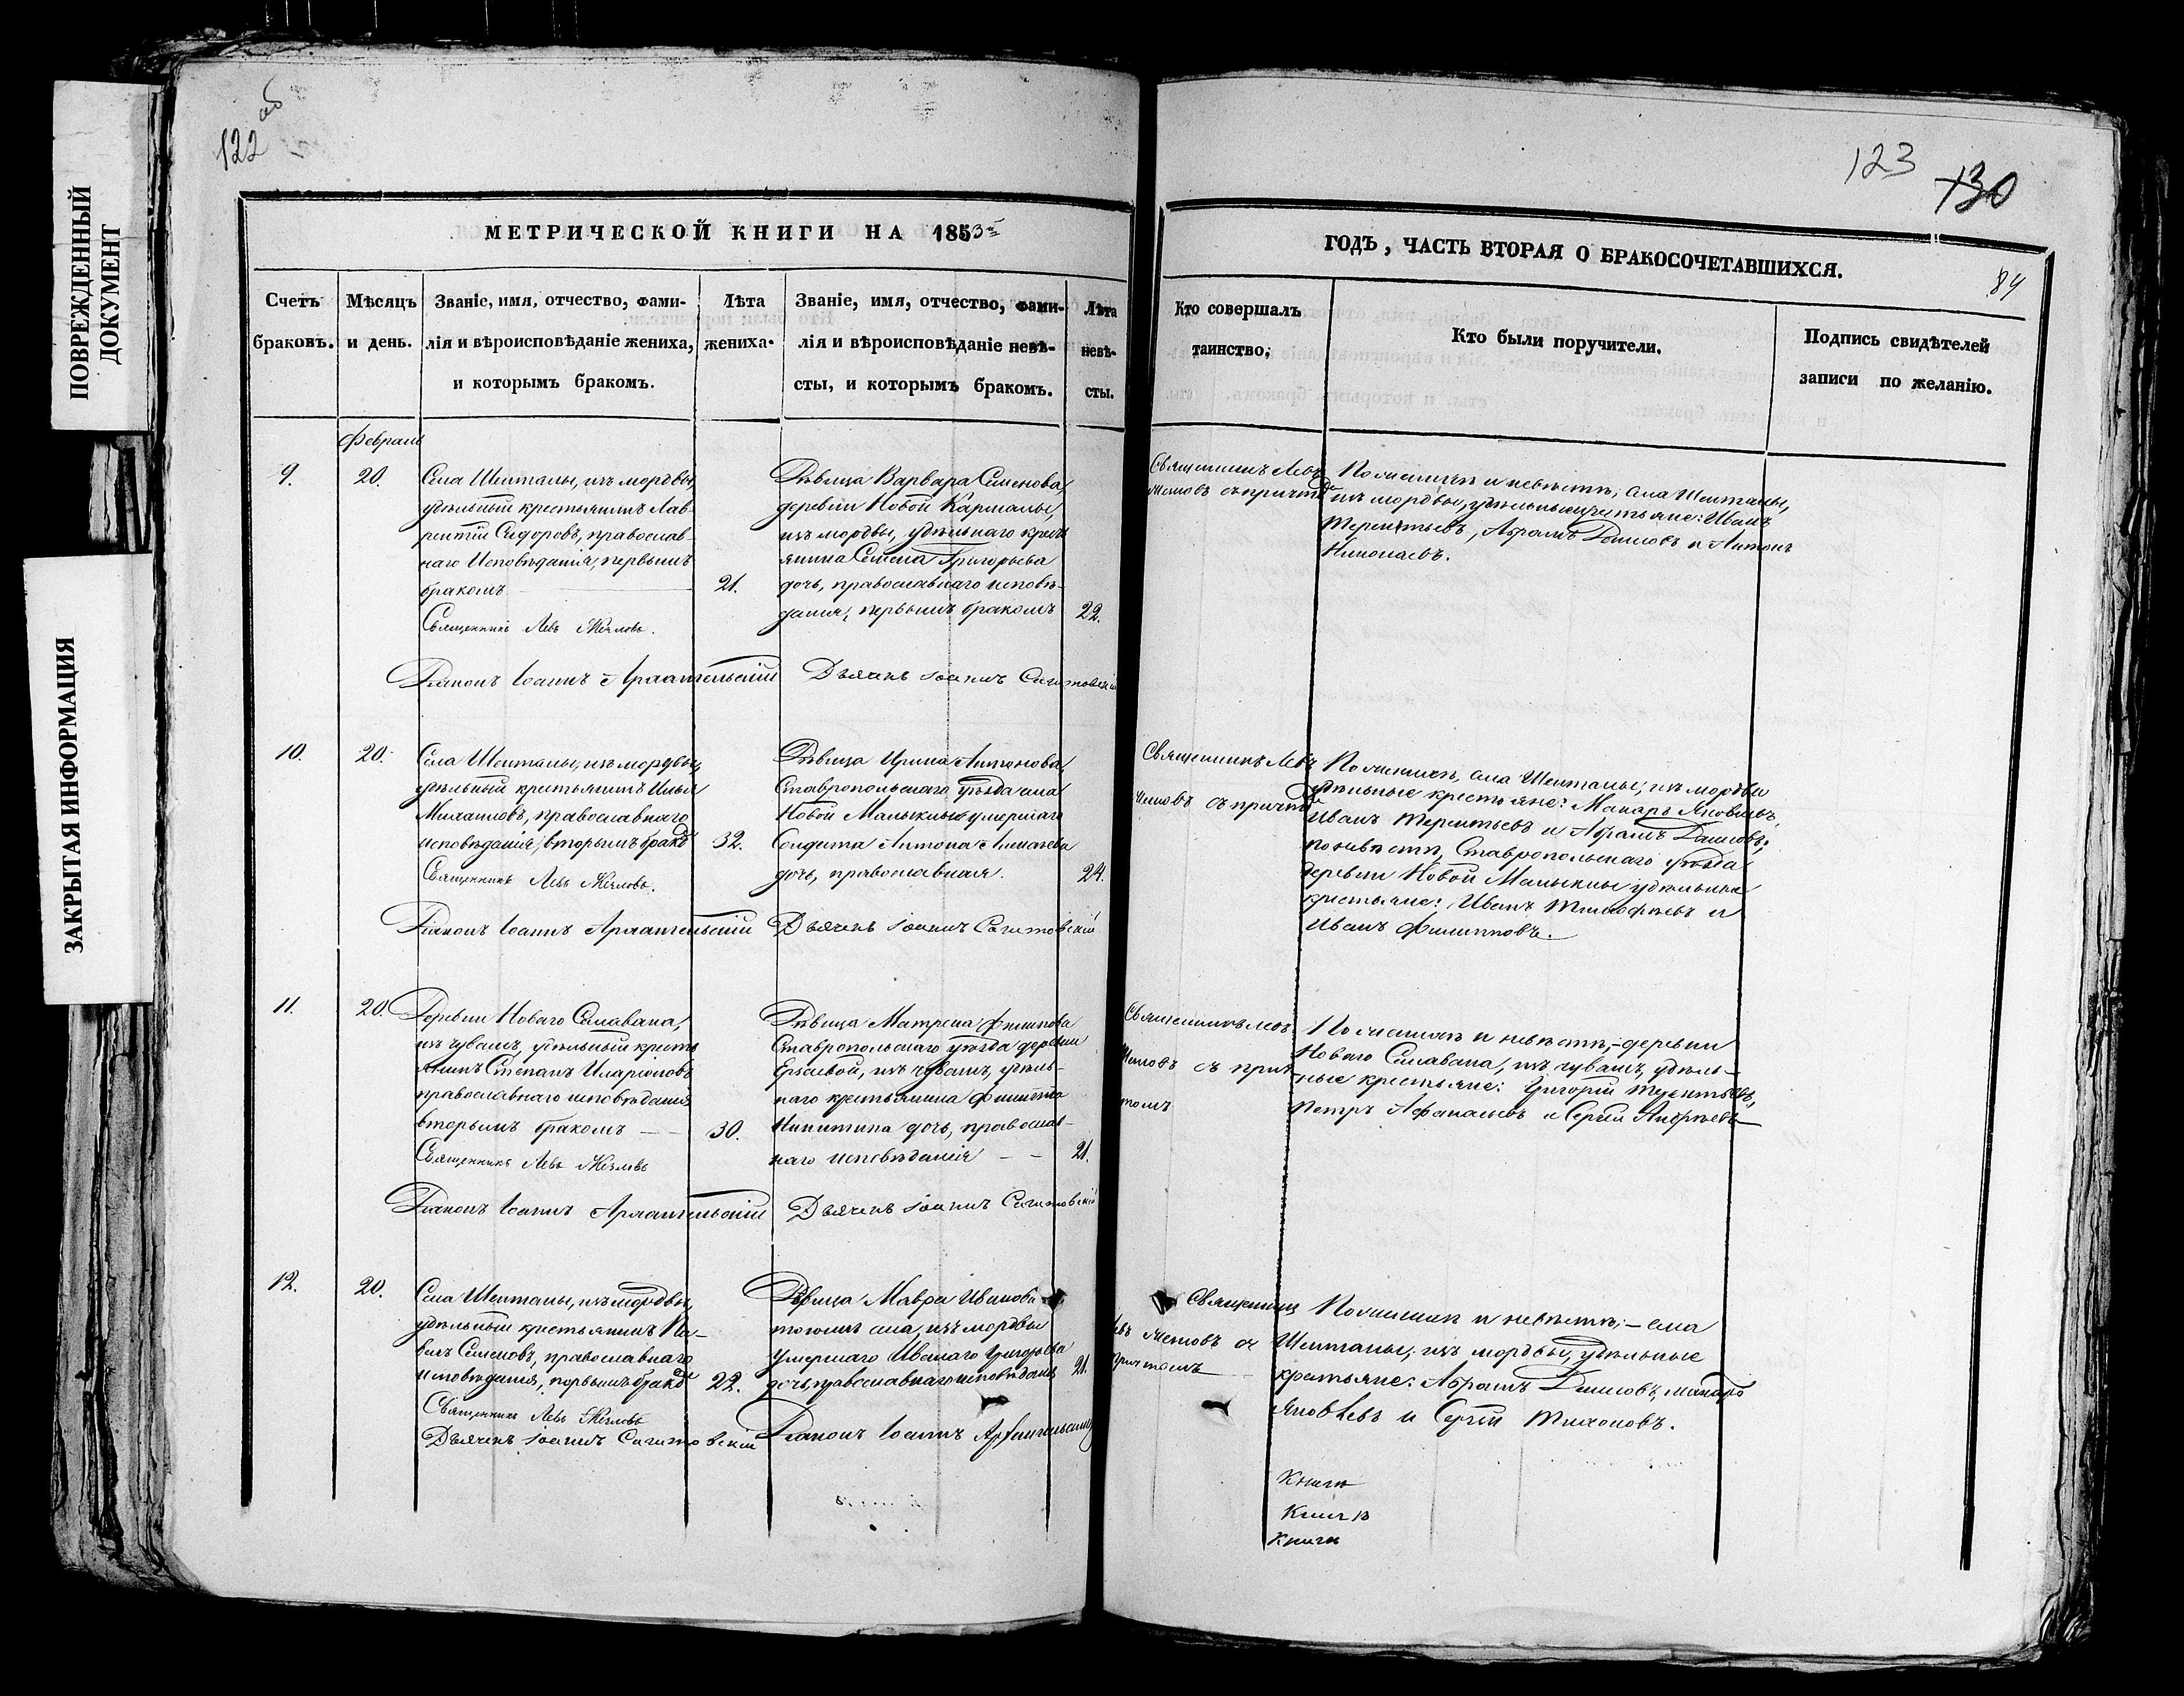 ПОВРЕЖДЕННЫЙ
ДОКУМЕНТ
ЗАКРЫТАЯ ИНФОРМАЦИЯ
122 об
МЕТРИЧЕСКОЙ КНИГИ НА 1853й
Счетъ
браковъ.
Мѣсяцъ
и день.
Званіе, имя, отчество, фами-
лія и вѣроисповѣданіе жениха,
и которымъ бракомъ.
Лѣта
жениха.
Званіе, имя, отчество, фами-
лія и вѣроисповѣданіе невѣ-
сты, и которымъ бракомъ.
Лѣта
невѣ-
сты.
Февраль
9.
20.
Села Шенталы, изъ мордвы,
удѣльный крестьянинъ Лав-
рентій Сидоровъ, православ-
наго Исповѣданія, первымъ
бракомъ
21.
Дѣвица Варвара Семенова,
деревни Новой Кармалы,
изъ мордвы, удѣльнаго крест
янина Семена Григорьева
дочь, православнаго исповѣ-
данія, первымъ бракомъ
22.
Священникъ Левъ
Діаконъ Іоаннъ Архангельскій
Дьячекъ Іоаннъ
10.
20.
Села Шенталы, изъ мордвы,
удѣльный крестьянинъ Илья
Михаиловъ, православнаго
исповѣданія, вторымъ бракомъ
32.
Дѣвица Ирина Антонова,
Ставропольскаго уѣзда села
Новой Малыклы умершаго
Солдата Антона
дочь, православная.
24.
Священникъ Левъ
Діаконъ Іоаннъ Архангельскій
Дьячекъ Іоаннъ
11.
20.
Деревни Новаго Салавана,
изъ чувашъ, удѣльный кресть
янинъ Степанъ Иларіоновъ
православнаго исповѣданія
вторымъ бракомъ
30.
Дѣвица Матрена Филипова
Ставропольскаго уѣзда деревни
изъ чувашъ, удѣль-
наго крестьянина Филиппа
Никитина дочь, православ-
наго исповѣданія
21.
Священникъ Левъ
Діаконъ Іоаннъ Архангельскій
Дьячекъ Іоаннъ
12.
20.
Села Шенталы, изъ мордвы,
удѣльный крестьянинъ Па-
велъ Семеновъ, православнаго
исповѣданія, первымъ бракомъ
22.
Дѣвица Мавра Иванова
тогожъ села, изъ мордвы
умершаго Ивана Григорьева
дочь, православнаго исповѣданія
21.
Священникъ Левъ
Дьячекъ Іоаннъ
Діаконъ Іоаннъ Архангельскій
123
130
ГОДЪ, ЧАСТЬ ВТОРАЯ О БРАКОСОЧЕТАВШИХСЯ.
84
Кто совершалъ
таинство.
Кто были поручители.
Подпись свидѣтелей
записи по желанію.
Священникъ Левъ
съ причтомъ
По женихѣ и невѣстѣ, села Шенталы,
изъ мордвы, удѣльные крестьяне: Иванъ
Терентьевъ, Абрамъ Даниловъ и Антонъ
Николаевъ.
Священникъ Левъ
съ причтомъ
По женихѣ, села Шенталы, изъ мордвы
удѣльные крестьяне: Макаръ Яковлевъ,
Иванъ Терентьевъ и Абрамъ Даниловъ;
по невѣстѣ, Ставропольскаго уѣзда
деревни Новой Малыклы удѣльные
крестьяне: Иванъ Тимофѣевъ и
Иванъ Филипповъ.
Священникъ Левъ
съ прич
томъ
По женихѣ и невѣстѣ,- деревни
Новаго Салавана, изъ чувашъ, удѣль-
ные крестьяне: Григорій Терентьевъ,
Петръ Афанасьевъ и Сергѣй Андрѣевъ
Священникъ
Левъ съ
причтомъ
По женихѣ и невѣстѣ;- села
Шенталы, изъ мордвы, удѣльные
крестьяне: Абрамъ Даниловъ, Макаръ
Яковлевъ и Сергѣй Тихоновъ.
Книги
Книги
Книги